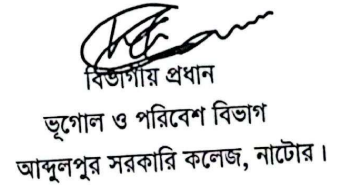 বিভাগীয় প্রধান
ভূগোল ও পরিবেশ বিভাগ
আব্দুলপুর সরকারি কলেজ, নাটোর।